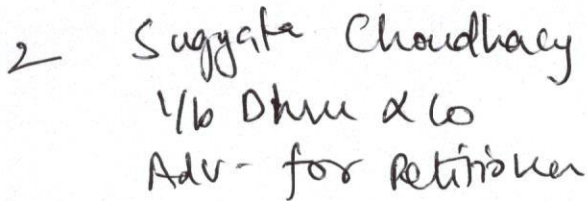 2 Sugyata Choudhary
i/b Dhru & Co
Adv - for Petitioner